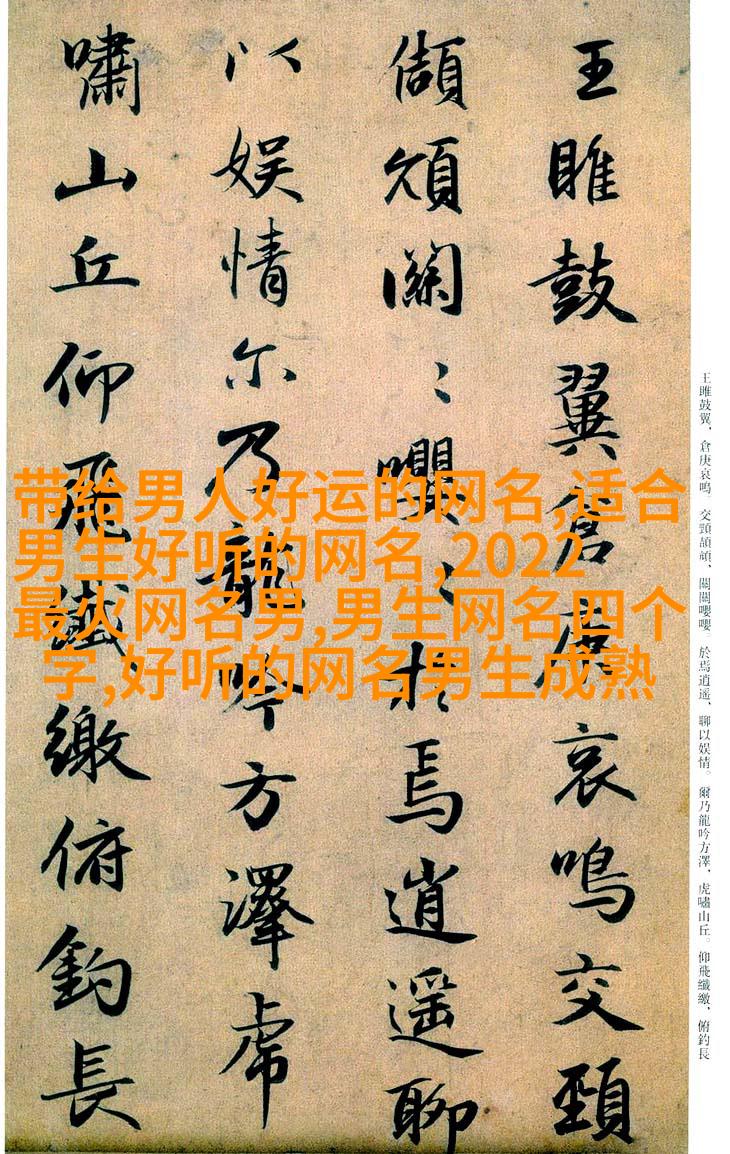 王雎鼓翼倉庚哀鳴交頸
頡頏關〻嚶〻於焉逍遥聊
以娱情尔乃龍吟方澤虎
嘯山丘仰飛纖繳俯釣長
王雎鼓翼、倉庚哀鳴。交頸頡頏、關關嚶嚶。於焉逍遥、聊以娱情。爾乃龍吟方澤、虎嘯山丘。仰飛纖繳、俯釣長
带给男人好运的网名,适合
男生好听的网名,2022
最火网名男,男生网名四个
字,好听的网名男生成熟